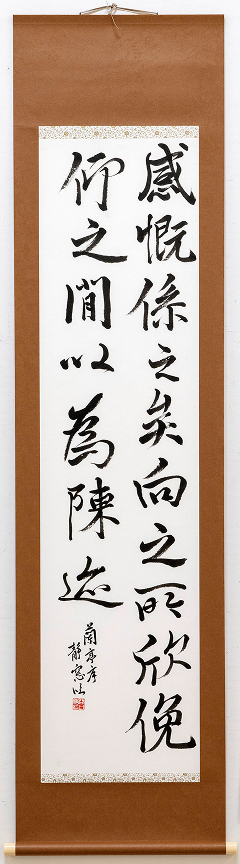 感慨係之矣向之所欣俛
仰之間以為陳迹
蘭亭序
静窓臨